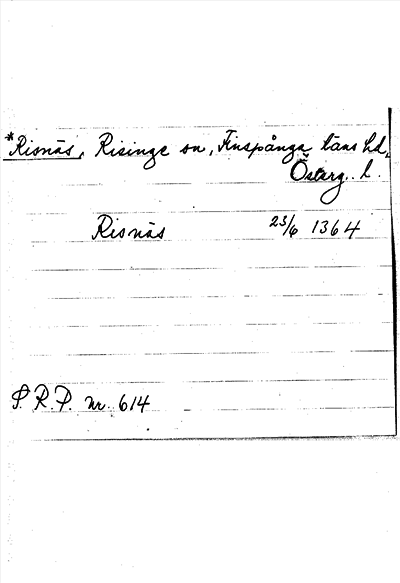 *Risnäs, Risinge sn, Finspånga läns hd,
Österg. l.
Risnäs 23/6 1364
S.R.P. nr. 614